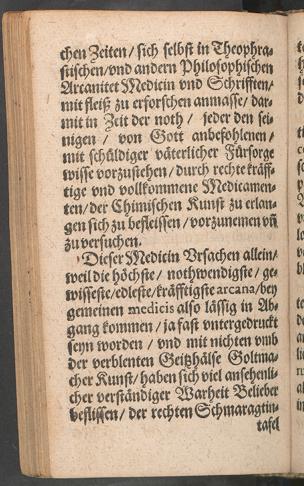 chen Zeiten / sich selbst in Theophra-
stischen / vnd andern Philosophischen
Arcanitet Medicin vnd Schrifften /
mit fleiß zu erforschen anmasse / dar-
mit in Zeit der noth / jeder den sei-
nigen / von Gott anbefohlenen /
mit schüldiger väterlicher Fürsorge
wisse vorzustehen / durch rechte kräff-
tige vnd vollkommene Medicamen-
ten / der Chimischen Kunst zu erlan-
gen sich zu befleissen / vorzunemen vñ
zu versuchen.
Dieser Medicin Vrsachen allein /
weil die höchste / nothwendigste / ge-
wisseste / edleste / kräfftigste arcana / bey
gemeinen medicis also lässig in Ab-
gang kommen / ja fast vntergedruckt
seyn worden / vnd mit nichten vmb
der verblenten Geitzhälse Goltma-
cher Kunst / haben sich viel ansehenli-
cher verständiger Warheit Belieber
beflissen / der rechten Schmaragtin-
tafel